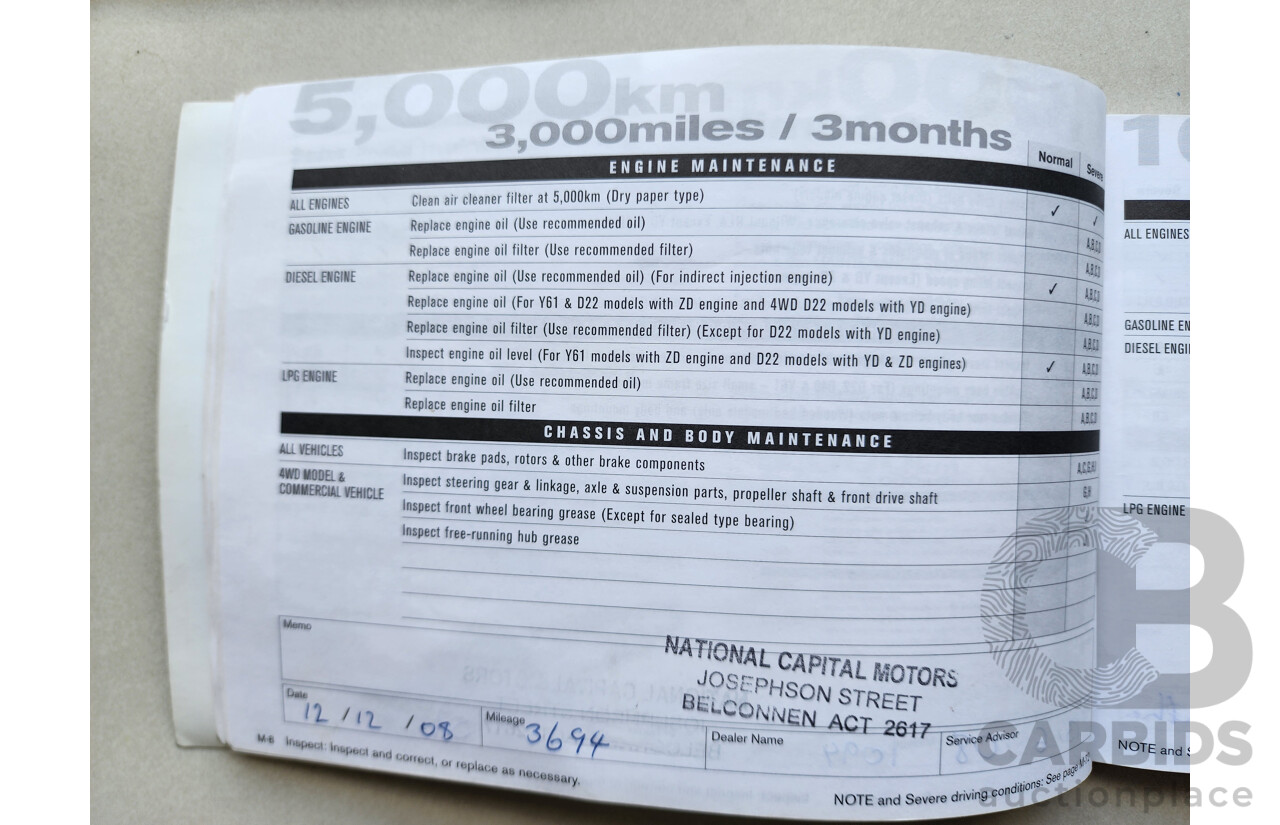 5,000km
3,000miles / 3months
Normal Severe
ENGINE MAINTENANCE
ALL ENGINES Clean air cleaner filter at 5,000km (Dry paper type) ✓ ✓
GASOLINE ENGINE Replace engine oil (Use recommended oil) A,B,C,D
Replace engine oil filter (Use recommended filter) A,B,C,D
DIESEL ENGINE Replace engine oil (Use recommended oil) (For indirect injection engine) ✓ A,B,C,D
Replace engine oil (For Y61 & D22 models with ZD engine and 4WD D22 models with YD engine) A,B,C,D
Replace engine oil filter (Use recommended filter) (Except for D22 models with YD engine) A,B,C,D
Inspect engine oil level (For Y61 models with ZD engine and D22 models with YD & ZD engines) ✓ A,B,C,D
LPG ENGINE Replace engine oil (Use recommended oil) A,B,C,D
Replace engine oil filter A,B,C,D
CHASSIS AND BODY MAINTENANCE
ALL VEHICLES Inspect brake pads, rotors & other brake components A,C,G,H,I
4WD MODEL & Inspect steering gear & linkage, axle & suspension parts, propeller shaft & front drive shaft G,H
COMMERCIAL VEHICLE Inspect front wheel bearing grease (Except for sealed type bearing)
Inspect free-running hub grease
Memo
NATIONAL CAPITAL MOTORS
JOSEPHSON STREET
BELCONNEN ACT 2617
Date 12/12/08 Mileage 3694 Dealer Name Service Advisor
M-6 Inspect: Inspect and correct, or replace as necessary.
NOTE and Severe driving conditions: See page
ALL ENGINES
GASOLINE EN
DIESEL ENGI
LPG ENGINE
NOTE and S
CARBIDS
auctionplace